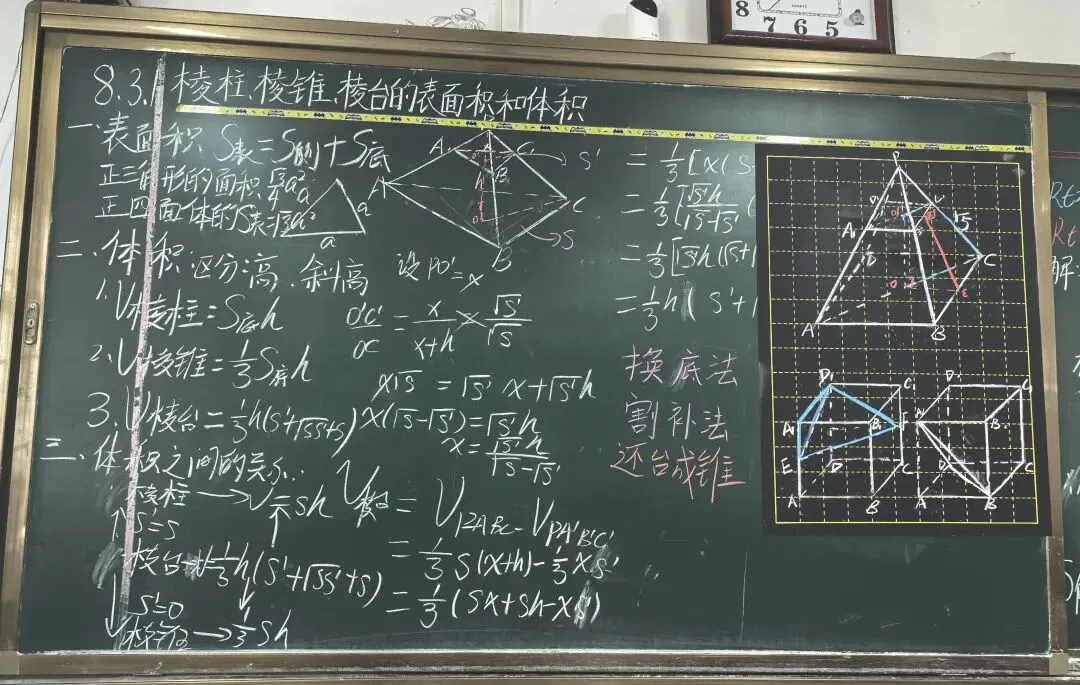 8.3.1 棱柱、棱锥、棱台的表面积和体积
一、表面积 S表=S侧+S底
正三角形的面积 √3/4 a²
正四面体的S表=√3a²
a
a
a
二、体积 区分高、斜高
1. V棱柱=S底h
2. V棱锥=1/3 S底h
3. V棱台=1/3 h(S'+√SS'+S)
三、体积之间的关系
棱柱 → V=Sh
S'=S
棱台 → V=1/3 h(S'+√SS'+S)
S'=0
棱锥 → 1/3 Sh
A
B
C
S'
S
设PO'=x
O'C'/OC = x/(x+h) = √S'/√S
x√S = √S' x+√S' h
x(√S-√S')=√S' h
x = √S' h/(√S-√S')
V棱台 = V PABC - V PA'B'C'
= 1/3 S(x+h) - 1/3 xS'
= 1/3 (Sx+Sh-xS')
= 1/3 [x(S-
= 1/3 [√S'h/(√S-√S') (
= 1/3 [√S'h(√S+
= 1/3 h( S'+
换底法
割补法
还台成锥
P
A
B
C
√5
D₁
C₁
A₁
B₁
E
D
C
A
B
D₁
C₁
B₁
D
C
A
B
Rt
Rt
解:
8
7 6 5
QUARTZ